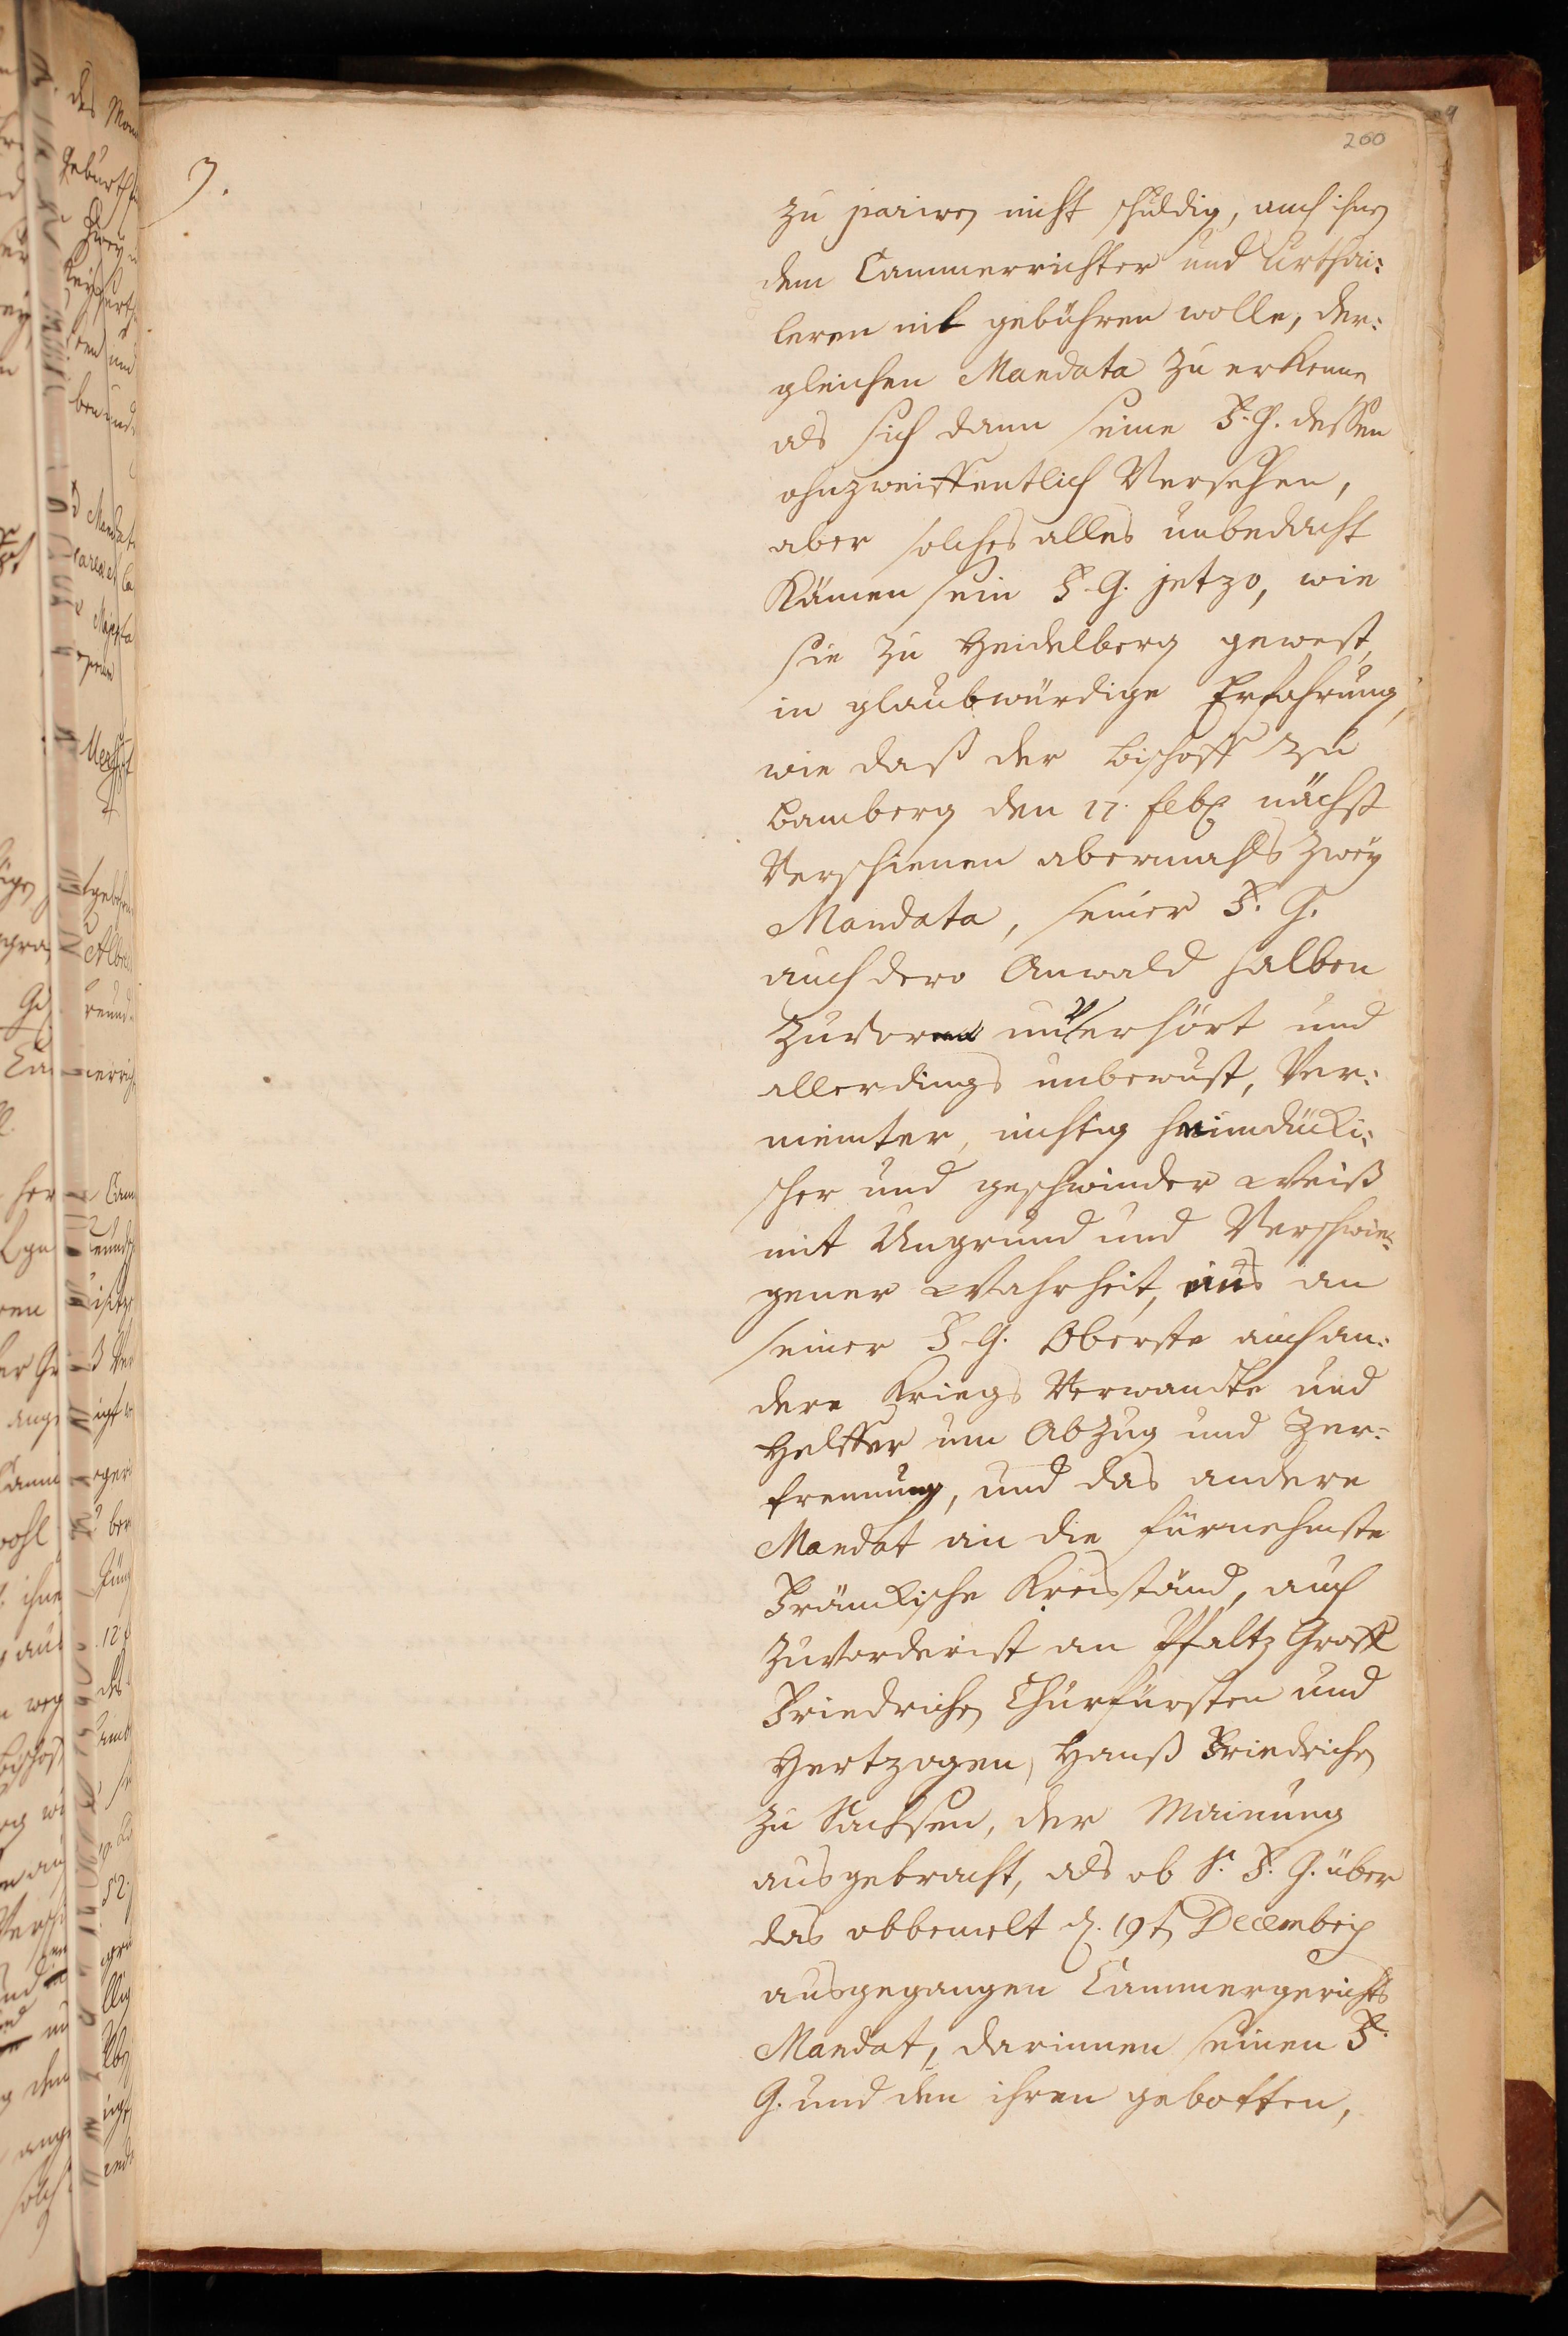 260
7.
zu pariren nicht schuldig, auch ihnen
dem Cammerrichter und Urthei:
leren nit gebühren wolle, der:
gleichen Mandata zu erkennen
als sich dann seine F. G. dessen
ohnzweiffentlich Versehen,
aber solches alles unbedacht
Kämen sein F. G. jetzo, wie
sie zu Heidelberg gewest,
in glaubwürdige Erfahrung,
wie daß der Bischoff zu
Bamberg den 17. febr. nächst
Verschienen abermahls zwey
Mandata, seiner F. G.
auch dero Anwald halben
zuvorn unverhört und
allerdings unbewust, Ver:
meinter, nichtig heimdücki:
scher und geschwinder Weiß
mit Ungrund und Verschwie:
gener Wahrheit, eins an
seiner F. G. Oberste auch an:
dere Kriegs Verwandte und
Helffer um Abzug und Zer:
trennung, und das andere
Mandat an die fürnehmste
Fränkische Kreisständ, auch
zuvorderist an Pfaltz Graff
Friedrichen Churfürsten und
Hertzogen, Hanß Friedrichen
zu Sachsen, der Mainung
ausgebracht, als ob S. F. G. über
das obbemelt d. 19t Decembris
ausgegangen Cammergerichts
Mandat, darinnen seinen F.
G. und den ihren gebotten,